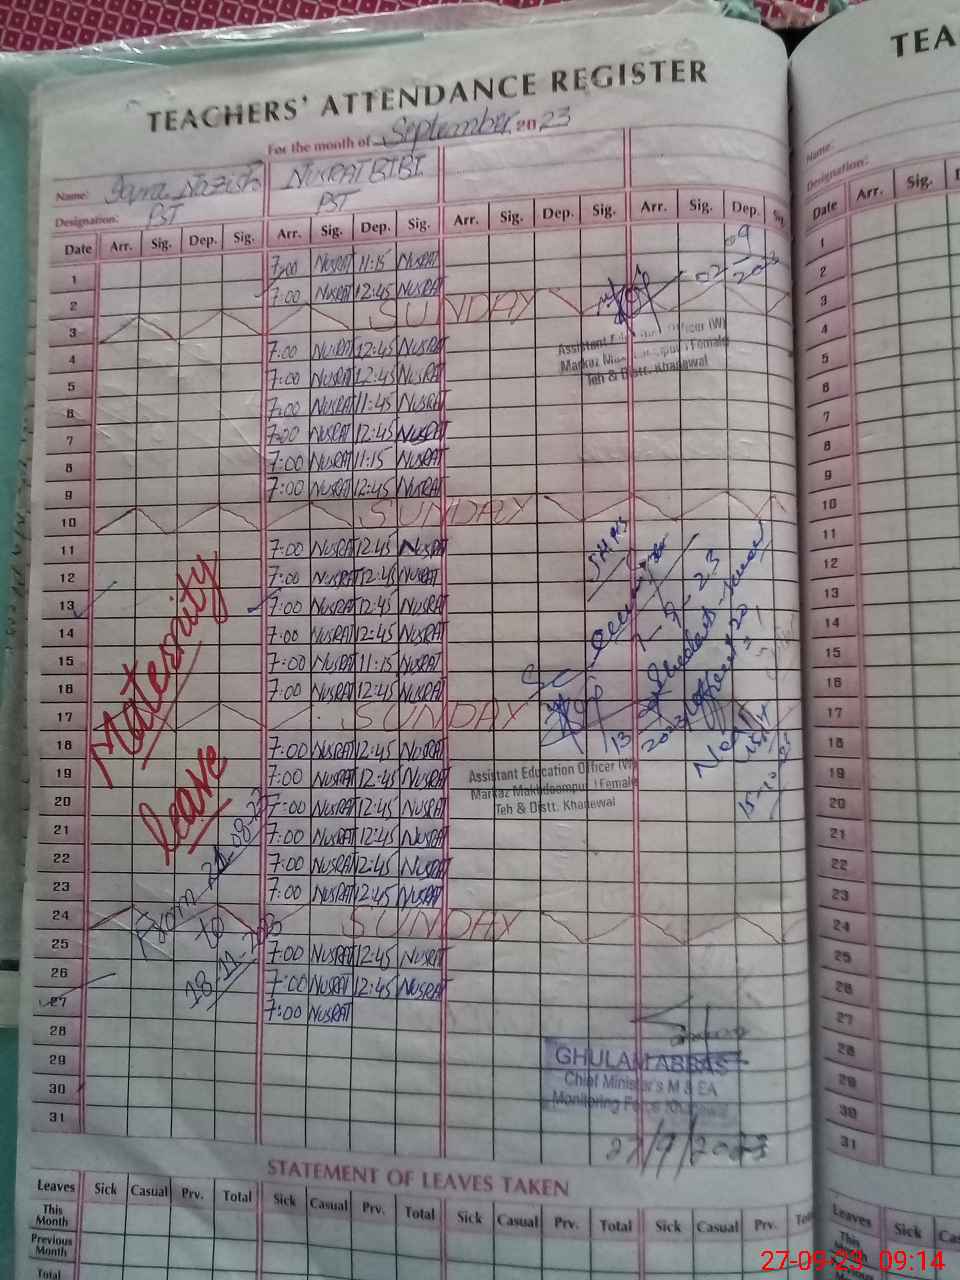 TEACHERS' ATTENDANCE REGISTER
For the month of September 2023
Name: Nazish NUSRAT BIBI
Designation: PST PST
Date Arr. Sig. Dep. Sig. Arr. Sig. Dep. Sig. Arr. Sig. Dep. Sig. Arr. Sig. Dep.
1 7:00 NUSRAT 11:15 NUSRAT
2 7:00 NUSRAT 12:45 NUSRAT
3 SUNDAY
4 7:00 NUSRAT 12:45 NUSRAT
5 7:00 NUSRAT 12:45 NUSRAT
6 7:00 NUSRAT 11:45 NUSRAT
7 7:00 NUSRAT 12:45 NUSRAT
8 7:00 NUSRAT 11:15 NUSRAT
9 7:00 NUSRAT 12:45 NUSRAT
10 SUNDAY
11 7:00 NUSRAT 12:45 NUSRAT
12 7:00 NUSRAT 12:45 NUSRAT
13 7:00 NUSRAT 12:45 NUSRAT
14 7:00 NUSRAT 12:45 NUSRAT
15 7:00 NUSRAT 11:15 NUSRAT
16 7:00 NUSRAT 12:45 NUSRAT
17 SUNDAY
18 7:00 NUSRAT 12:45 NUSRAT
19 7:00 NUSRAT 12:45 NUSRAT
20 7:00 NUSRAT 12:45 NUSRAT
21 7:00 NUSRAT 12:45 NUSRAT
22 7:00 NUSRAT 12:45 NUSRAT
23 7:00 NUSRAT 12:45 NUSRAT
24 SUNDAY
25 7:00 NUSRAT 12:45 NUSRAT
26 7:00 NUSRAT 12:45 NUSRAT
27 7:00 NUSRAT
28
29
30
31
Maternity
leave
From
to
18.11.2023
Assistant Officer (W)
Markaz Female
Teh & Distt. Khanewal
Assistant Education Officer (W)
Markaz Makhdoompur Female
Teh & Distt. Khanewal
GHULAM ABBAS
Chief Minister's M & EA
Monitoring Force Khanewal
27/9/2023
STATEMENT OF LEAVES TAKEN
Leaves Sick Casual Prv. Total Sick Casual Prv. Total Sick Casual Prv. Total Sick Casual Prv.
This Month
Previous Month
Total
TEA
Name:
Designation:
Date Arr. Sig.
1
2
3
4
5
6
7
8
9
10
11
12
13
14
15
16
17
18
19
20
21
22
23
24
25
26
27
28
29
30
31
Leaves Sick
27-09-23 09:14